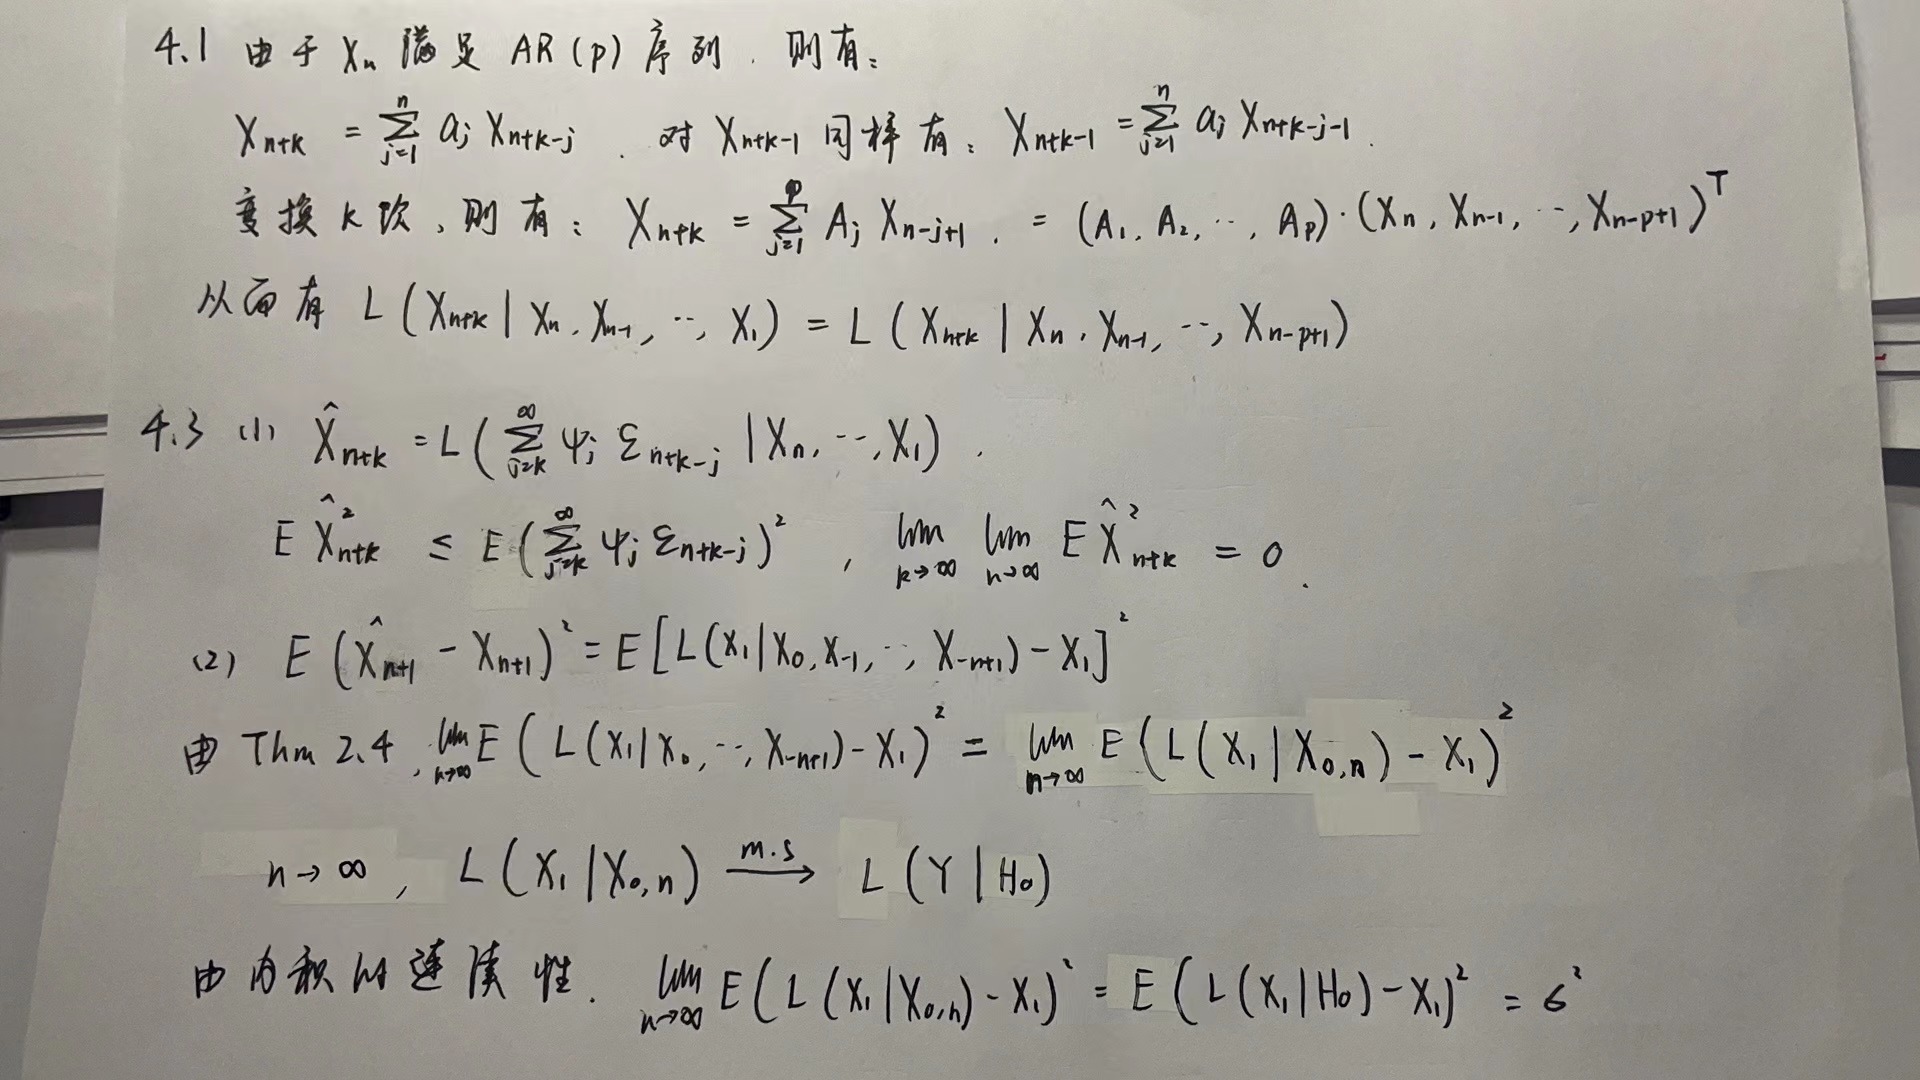 4.1 由于 Xₙ 满足 AR(p) 序列. 则有:
X_{n+k} = ∑_{j=1}^{n} a_j X_{n+k-j} . 对 X_{n+k-1} 同样有: X_{n+k-1} = ∑_{j=1}^{n} a_j X_{n+k-j-1} .
变换 k 次, 则有: X_{n+k} = ∑_{j=1}^{p} A_j X_{n-j+1} . = (A_1, A_2, ⋯, A_p)·(X_n, X_{n-1}, ⋯, X_{n-p+1})^T
从而有 L(X_{n+k} | X_n, X_{n-1}, ⋯, X_1) = L(X_{n+k} | X_n, X_{n-1}, ⋯, X_{n-p+1})
4.3 (1) X̂_{n+k} = L(∑_{j=k}^{∞} ψ_j ε_{n+k-j} | X_n, ⋯, X_1) .
E X̂²_{n+k} ≤ E(∑_{j=k}^{∞} ψ_j ε_{n+k-j})² , lim_{k→∞} lim_{n→∞} E X̂²_{n+k} = 0 .
(2) E(X̂_{n+1} - X_{n+1})² = E[L(X_1|X_0, X_{-1}, ⋯, X_{-n+1}) - X_1]²
由 Thm 2.4, lim_{n→∞} E(L(X_1|X_0, ⋯, X_{-n+1}) - X_1)² = lim_{n→∞} E(L(X_1|X_{0,n}) - X_1)²
n→∞, L(X_1|X_{0,n}) \xrightarrow{m.s} L(Y|H_0)
由内积的连续性. lim_{n→∞} E(L(X_1|X_{0,n}) - X_1)² = E(L(X_1|H_0) - X_1)² = σ²